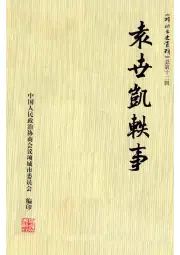 《项城文史资料》总第十二辑
袁世凯轶事
中国人民政治协商会议项城市委员会 编印